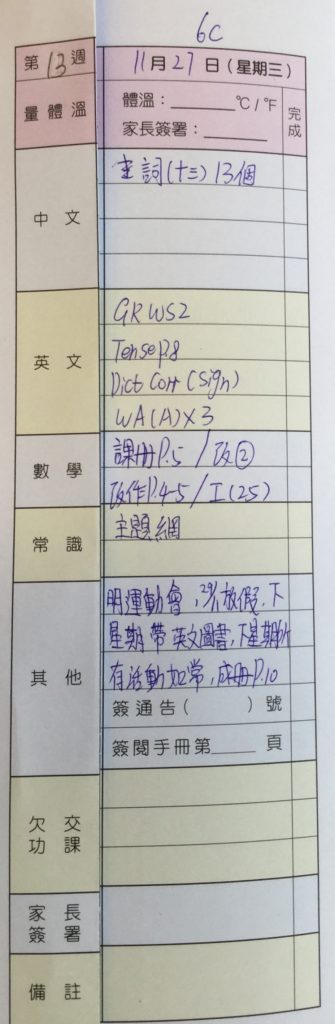 6C
第13週 11月27日(星期三)
量體溫 體溫:______℃/℉ 完成
家長簽署:______
中文 生詞(十三)13個
英文 GRWS2
Tense P.8
Dict Corr (Sign)
WA(A)×3
數學 課冊P.5 / 改②
改作P.4-5 / I(25)
常識 主題網
其他 明運動會,29/11放假,下
星期帶英文圖書,下星期所
有活動如常,成冊P.10
簽通告( )號
簽閱手冊第____頁
欠交功課
家長簽署
備註